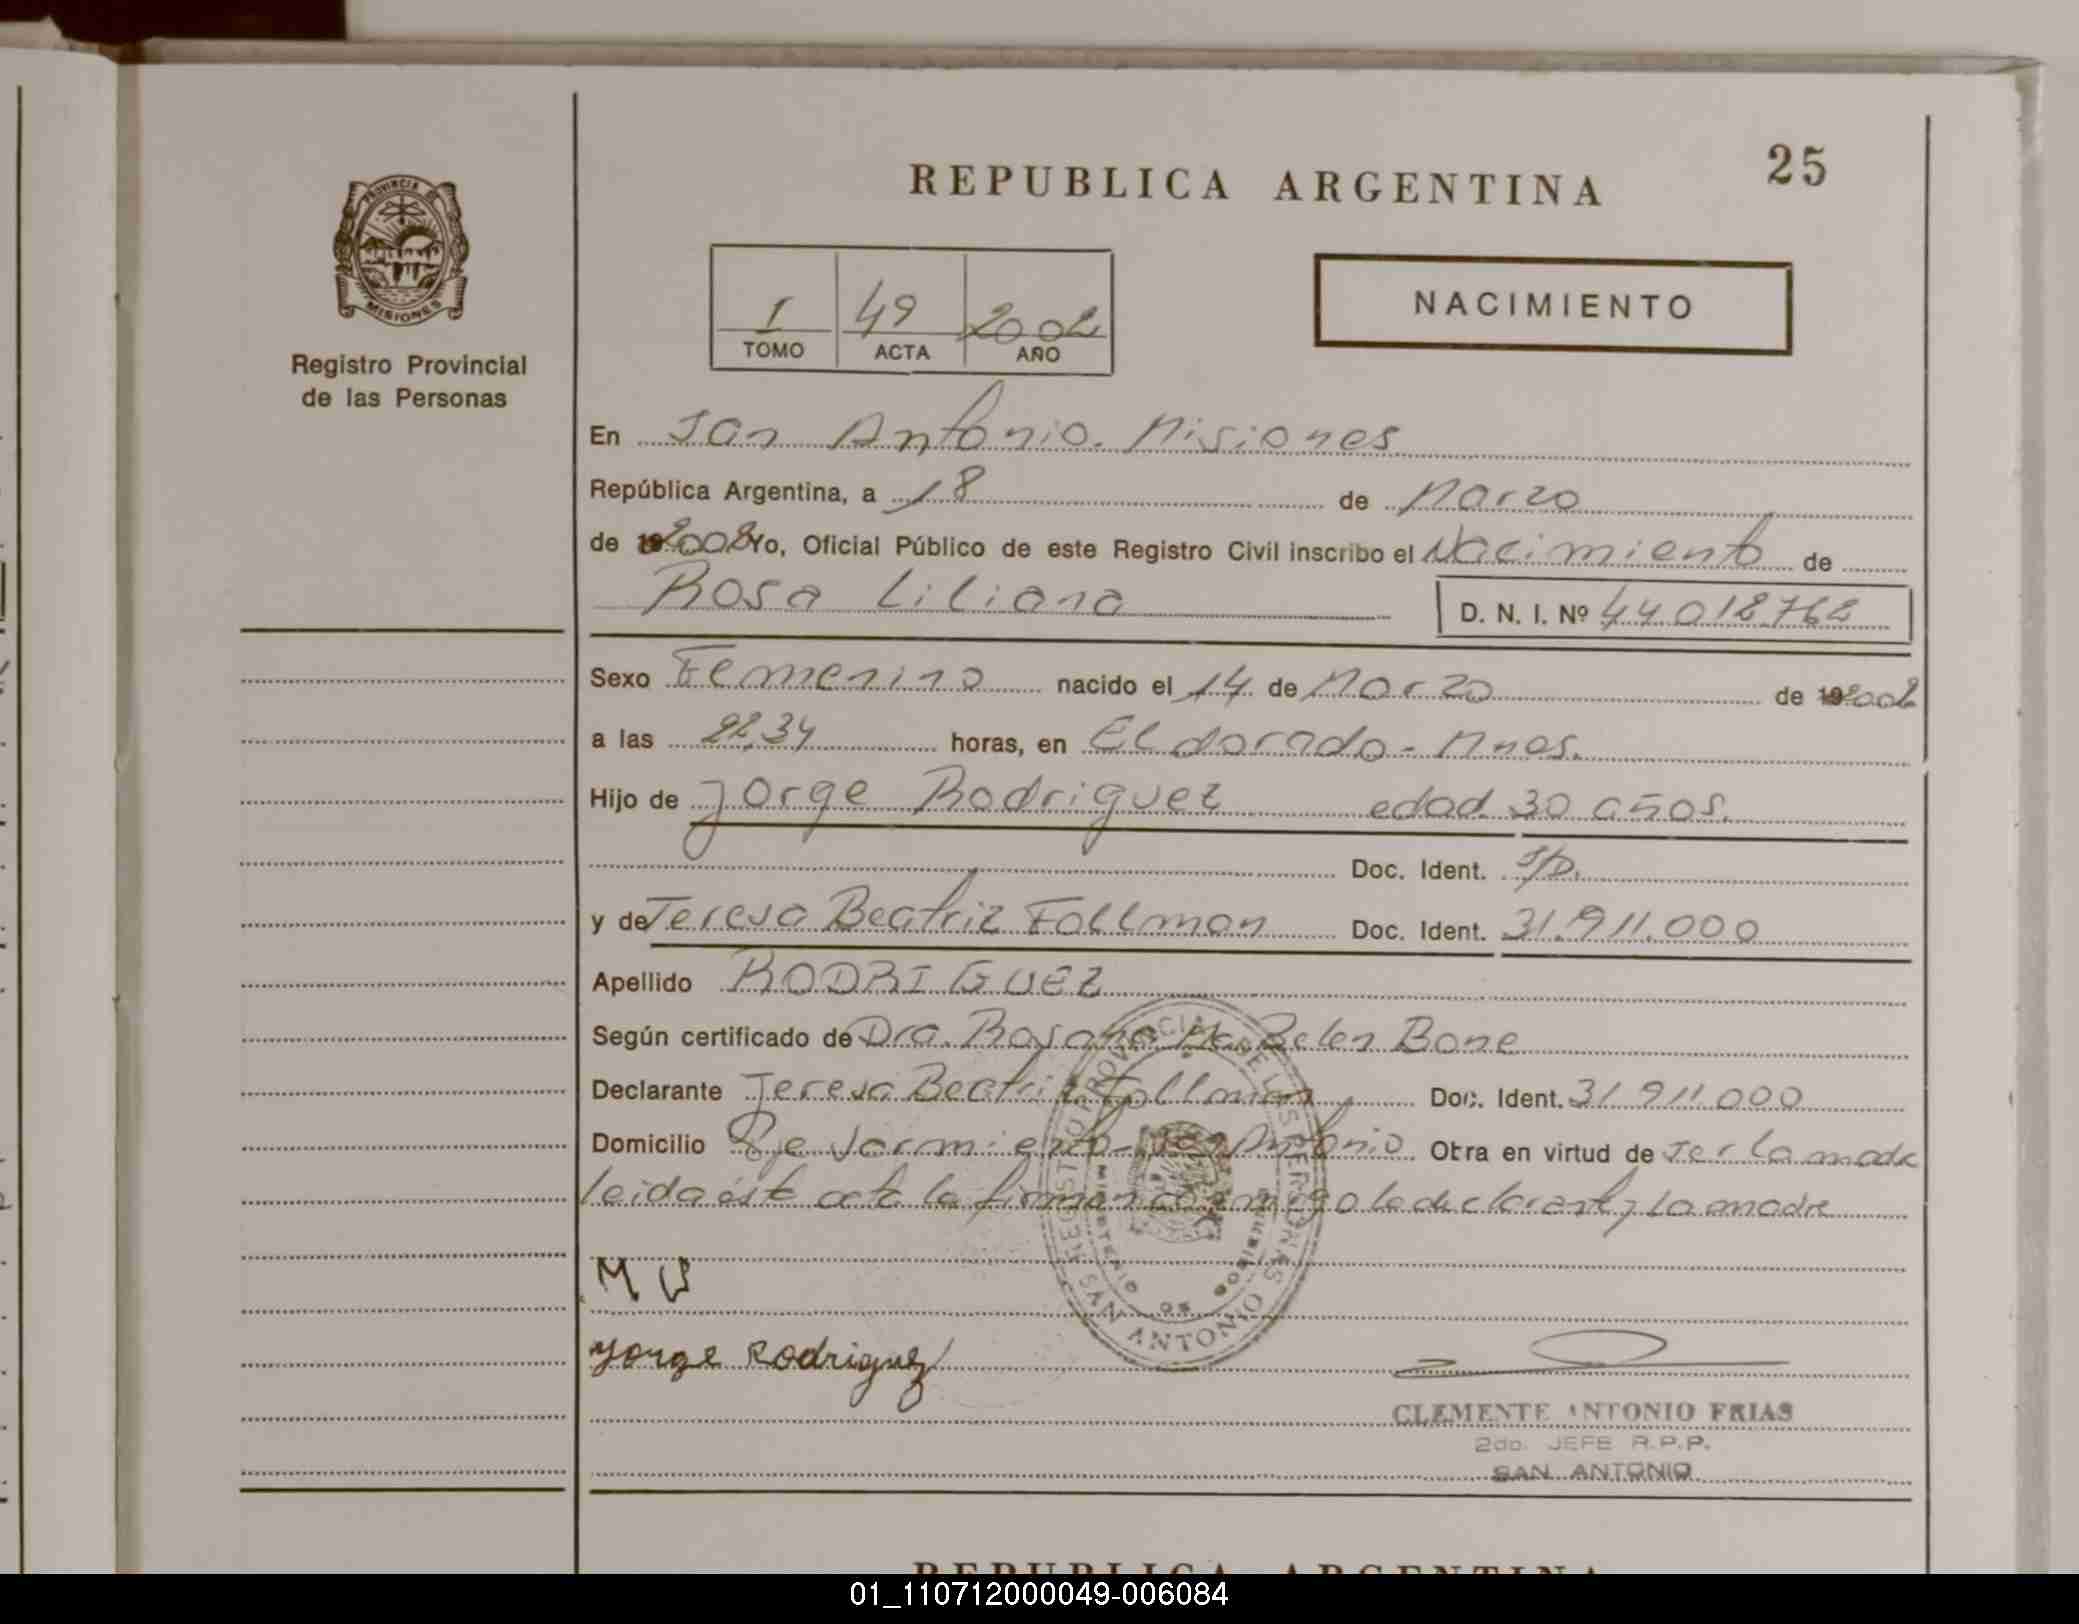 REPUBLICA ARGENTINA
25
PROVINCIA DE
MISIONES
Registro Provincial
de las Personas
1 49 2002
TOMO ACTA AÑO
NACIMIENTO
En San Antonio. Misiones
República Argentina, a 18 de Marzo
de 2002 Yo, Oficial Público de este Registro Civil inscribo el Nacimiento de
Rosa Liliana
D. N. I. Nº 44.018.768
Sexo Femenino nacido el 14 de Marzo de 2002
a las 22,34 horas, en Eldorado - Mnes.
Hijo de Jorge Rodriguez edad 30 años.
Doc. Ident. S/D.
y de Teresa Beatriz Follman Doc. Ident. 31.911.000
Apellido RODRIGUEZ
Según certificado de Dra. Rosana Ma. Belen Bone
Declarante Teresa Beatriz Follman Doc. Ident. 31 911.000
Domicilio Pje Sarmiento - San Antonio Obra en virtud de ser la madre
leida éste acta la firman conmigo la declarante y la madre
Jorge Rodriguez
REGISTRO PROVINCIAL DE LAS PERSONAS
MINISTERIO DE GOBIERNO
SAN ANTONIO
CLEMENTE ANTONIO FRIAS
2do. JEFE R.P.P.
SAN ANTONIO
REPUBLICA ARGENTINA
01_110712000049-006084